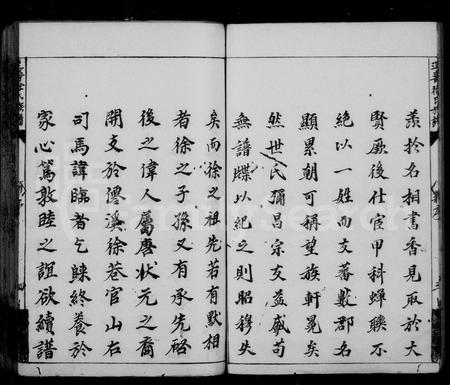 羨於名相書香見取於大
賢厥後仕宦甲科蟬聯不
絕以一姓而文蕃數郡名
顯累朝可稱望族軒冕矣
然世氏彌昌宗支益盛苟
無譜牒以紀之則昭穆失
矣而徐之祖先若有默相
者徐之子孫又有承先啓
後之偉人屬唐狀元之裔
開支於澧溪徐巷官山右
司馬諱臨者乞歸終養於
家心篤敦睦之誼欲續譜